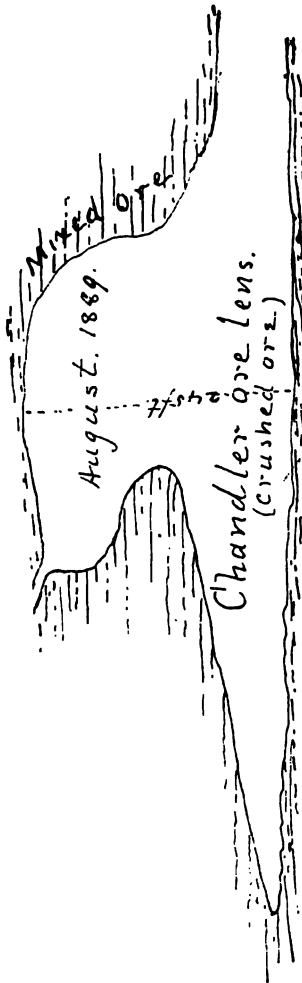 Mixed Ore
August. 1889.
245 ft
Chandler ore lens.
(crushed ore)